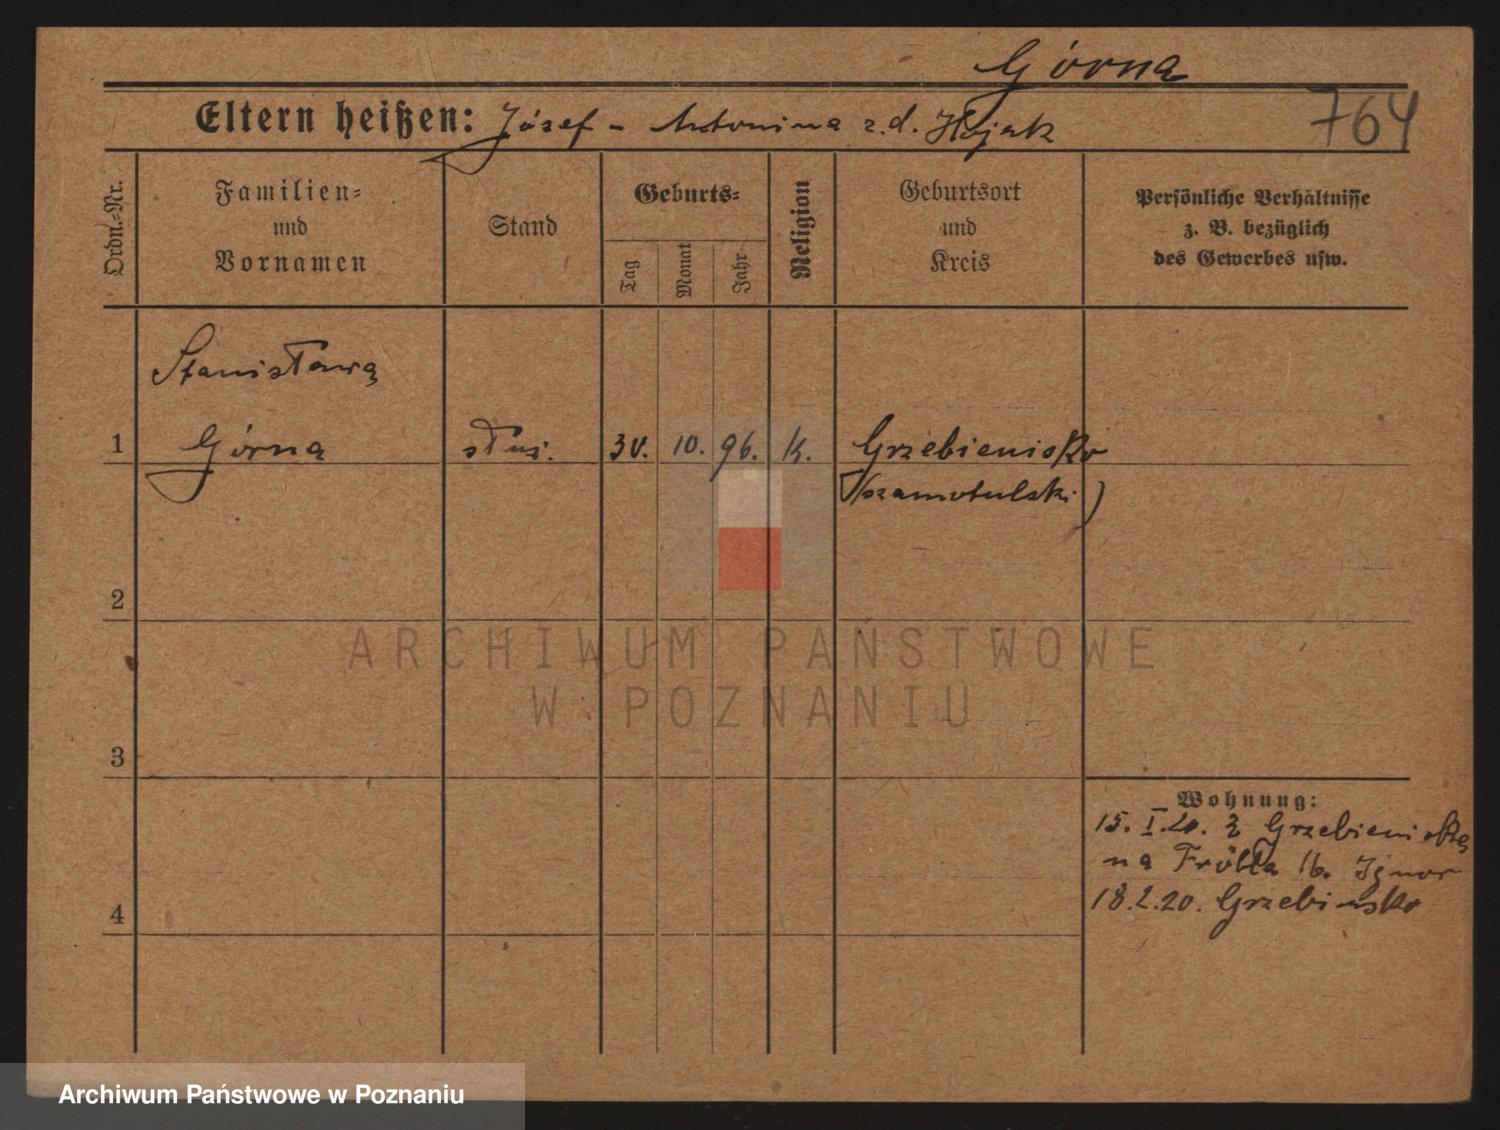 Górna
764
Eltern heißen: Józef - Antonina z.d.
Ordn.=Nr.
Familien=
und
Vornamen
Stand
Geburts=
Tag
Monat
Jahr
Religion
Geburtsort
und
Kreis
Persönliche Verhältnisse
z. B. bezüglich
des Gewerbes usw.
Stanisława
1 Górna służ. 30. 10. 96. k. Grzebienisko
(szamotulski)
2
3
4
Wohnung:
15. I. 20. z Grzebieniska
na 16.
18.2.20. Grzebinsko
ARCHIWUM PAŃSTWOWE
W POZNANIU
Archiwum Państwowe w Poznaniu